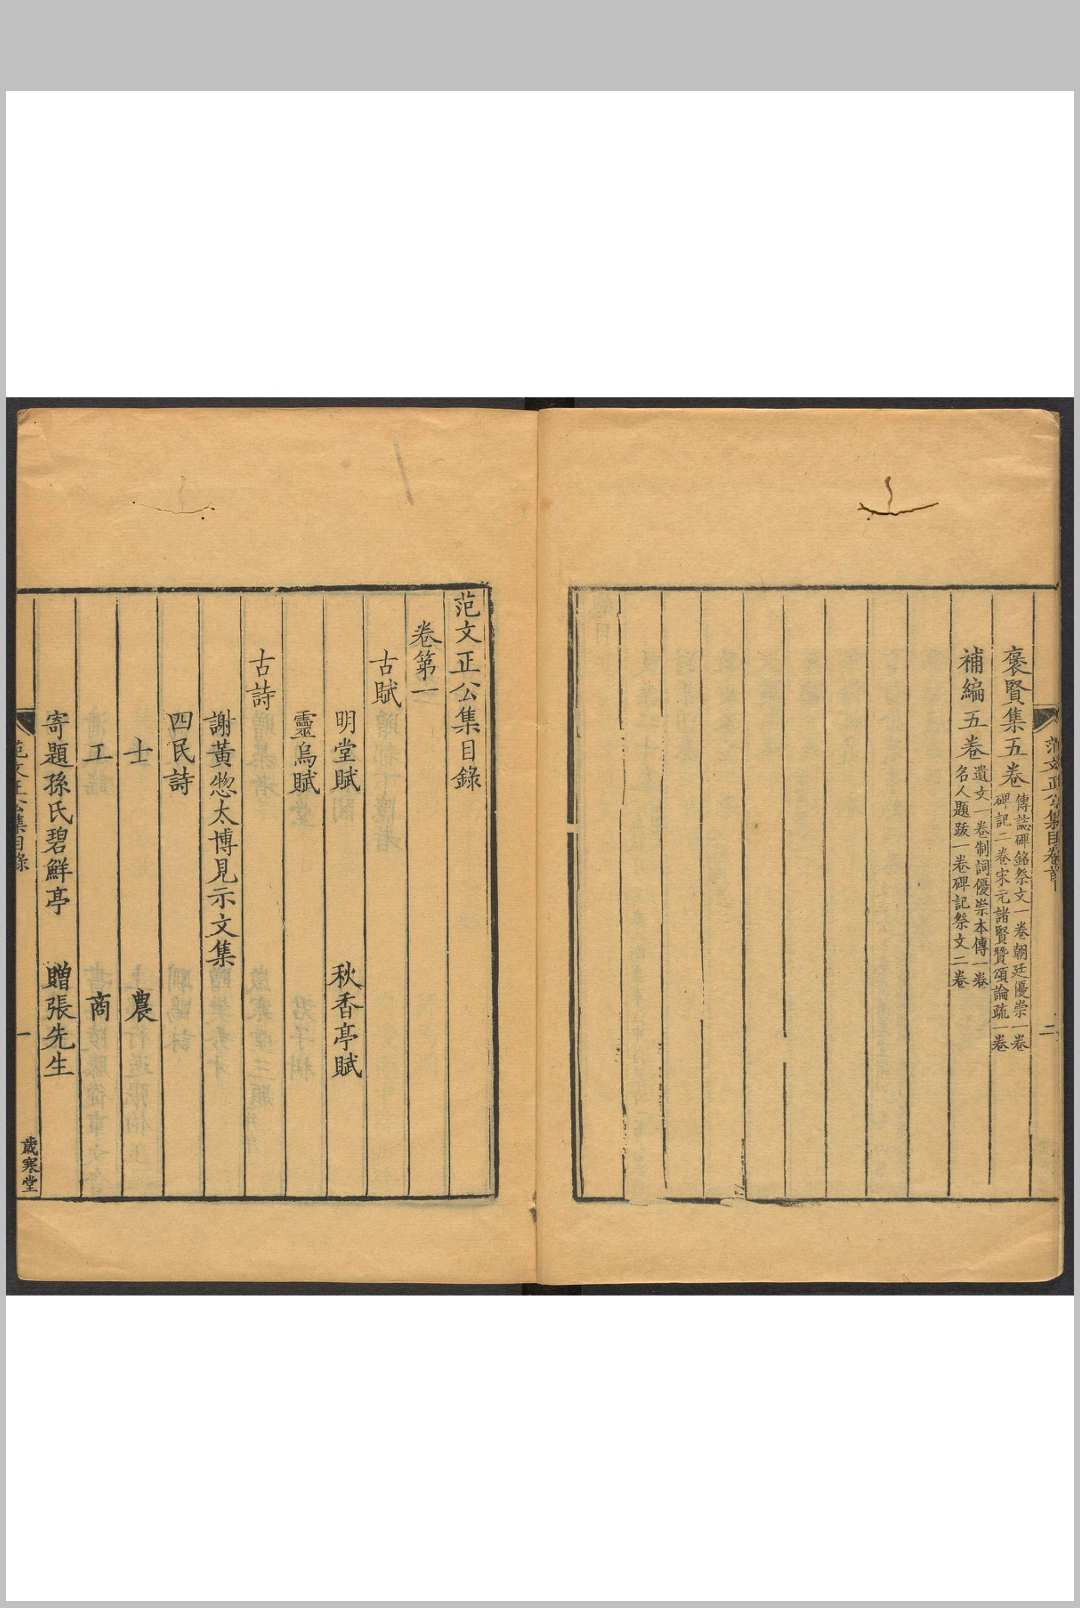 褒賢集五卷
傳誌碑銘祭文一卷朝廷優崇一卷
碑記二卷宋元諸賢贊頌論疏一卷
補編五卷
遺文一卷制詞優崇本傳一卷
名人題跋一卷碑記祭文二卷
二
范文正公集目錄
卷第一
古賦
明堂賦 秋香亭賦
靈烏賦
古詩
謝黃㹅太博見示文集
四民詩
士 農
工 商
寄題孫氏碧鮮亭 贈張先生
范文正公集目錄
一
歲寒堂